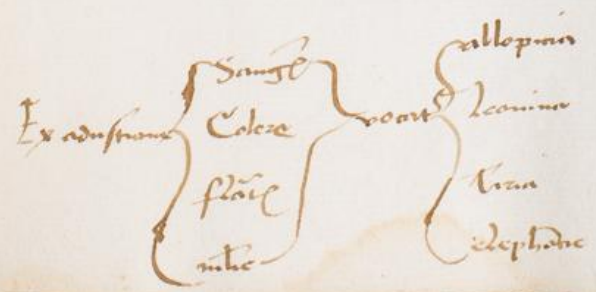 Ex adustione
Sang
Colere
flat
mlie
vocat
allopicia
leonina
tiria
elephatie